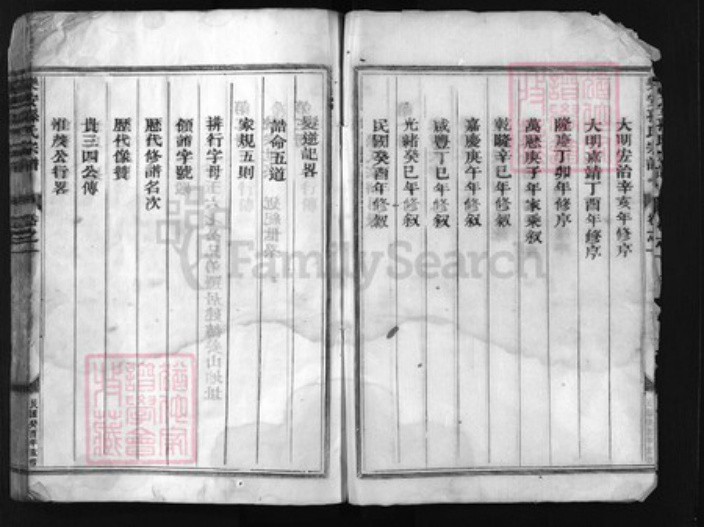 大明宏治辛亥年修序
大明嘉靖丁酉年修序
隆慶丁卯年修序
萬歷庚子年家乘叙
乾隆辛巳年修叙
嘉慶庚午年修叙
咸豐丁巳年修叙
光緒癸巳年修叙
民國癸酉年修叙
髮逆記畧
誥命五道
家規五則
排行字母
領譜字號
歷代修譜名次
歷代像贊
貴三四公傳
惟茂公行畧
民國癸酉年重修
FamilySearch